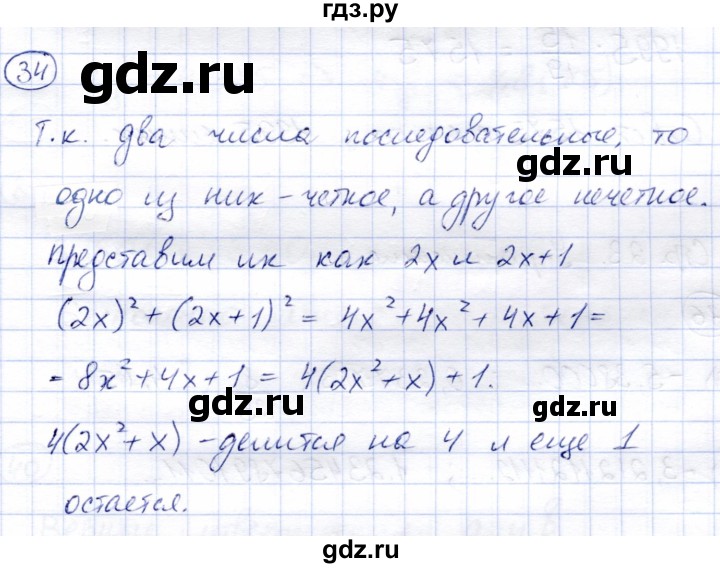 гдз.ру
34
gdz.ru
Т.к. два числа последовательные, то
gdz.ru
одно из них - четное, а другое нечетное.
Представим их как 2x и 2x+1
(2x)² + (2x+1)² = 4x² + 4x² + 4x + 1 =
= 8x² + 4x + 1 = 4(2x² + x) + 1.
gdz.ru
4(2x² + x) - делится на 4 и еще 1
остается.
gdz.ru